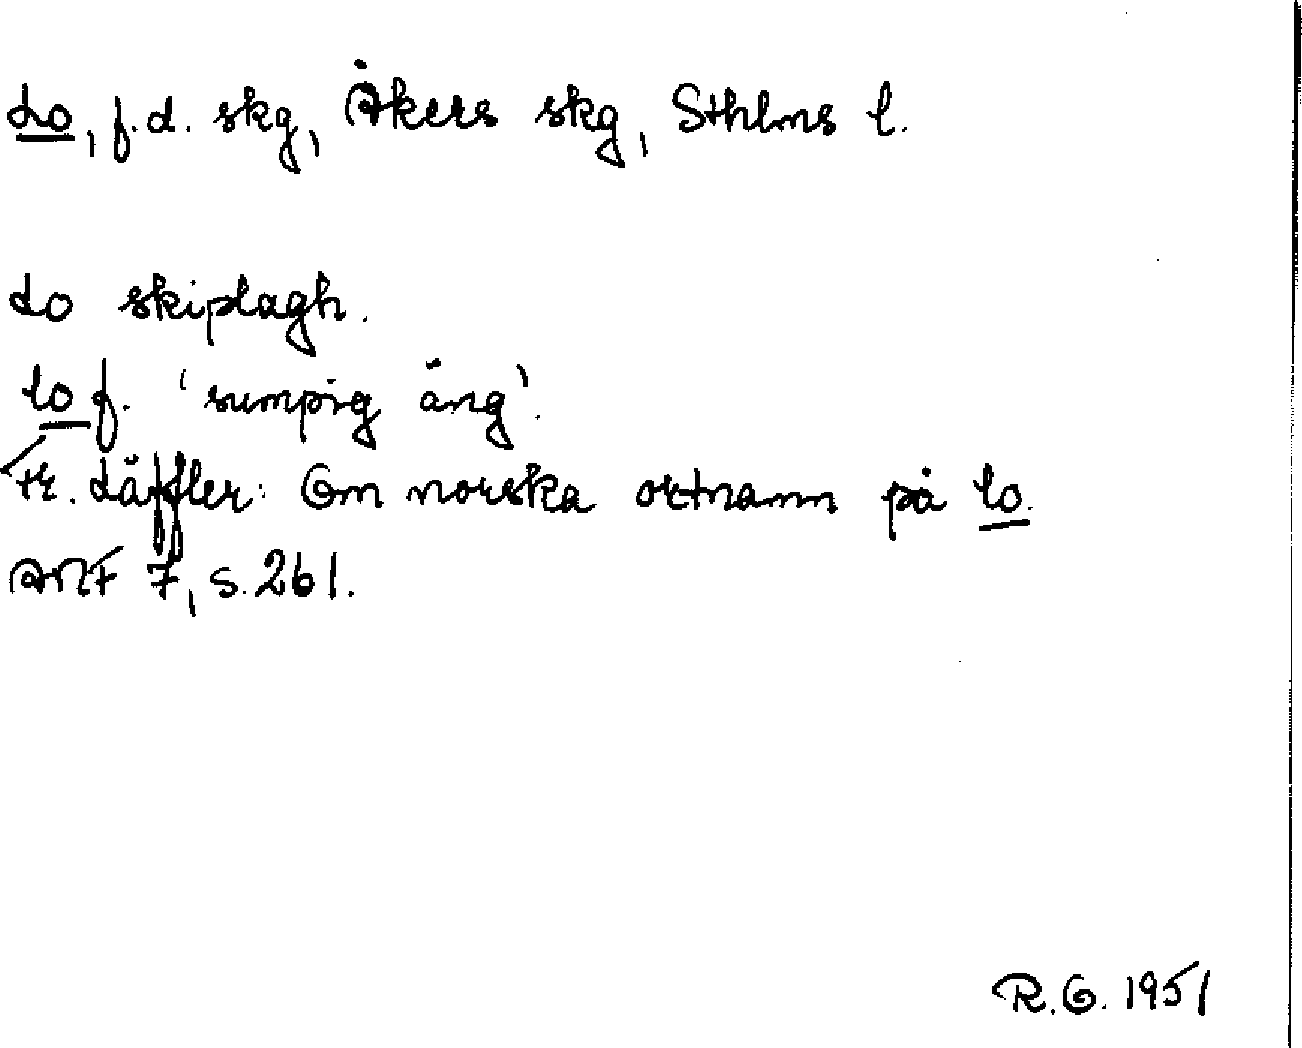 Lo, f.d. skg, Åkers skg, Sthlms l.
Lo skiplagh.
lo f. 'sumpig äng'.
Fr. Läffler: Om norska ortnamn på lo.
ANF 7, s. 261.
R.G. 1951